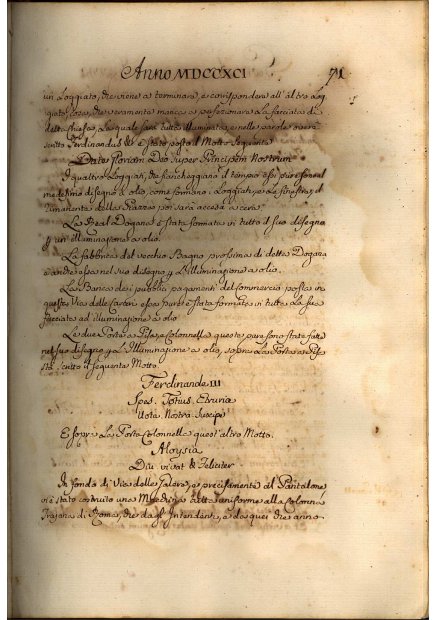 Anno MDCCXCI 71
un Loggiato, che viene a terminare, e corrispondere all'altro Log
giato, cosa, che veramente manca a perfezionare la facciata di
detta chiesa, la quale sarà tutta illuminata, e nelle parole overà
scritto Ferdinandus III è stato posto il Motto seguente
Date Gloriam Deo super Principem Nostrum
I quattro Loggiati, che fiancheggiano il tempio essi pure sono nel
medesimo disegno a olio, come formano i Loggiati, e le finestre, il
rimanente della Piazza poi sarà accesa a cera
La Real Dogana è stata formata in tutto il suo disegno
p un'illuminazione a olio.
La fabbrica del vecchio Bagno prossima di detta Dogana
è anche essa nel suo disegno p l'illuminazione a olio.
La Banca dei pubblici pagamenti del commercio posta in
questa Via delle Carceri essa pure è stata formata in tutta la sua
facciata ad illuminazione a olio
Le due Porta a Pisa, e Colonnella queste pure sono state fatte
nel suo disegno p l'illuminazione a olio, sopra la Porta a Pi
sa, sotto il seguente Motto
Ferdinande III
Spes Totius Etruria
Vota Nostra Suscipe
E sopra la Porta Colonnella quest'altro Motto.
Aloysia
Diu vivat & Feliciter
In fondo di Via delle Galere, e precisamente al Pantalone
vi è stato costruito una Macchina tutta uniforme alla Colonna
Trajana di Roma, che dagl'Intendenti, e da quei che anno